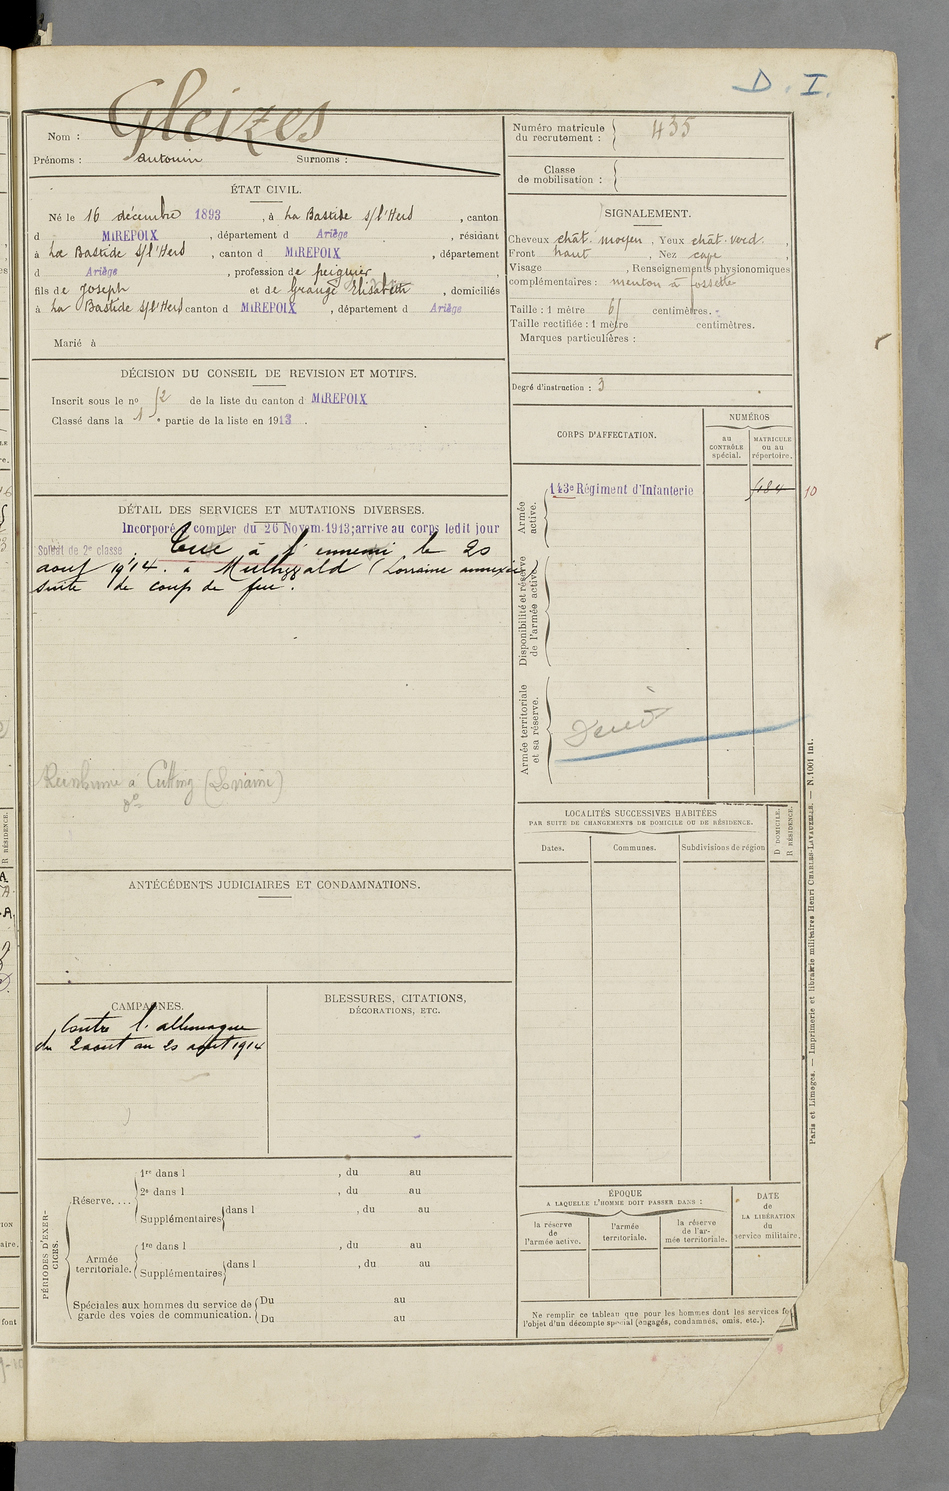 D. I.
Nom : Gleizes
Prénoms : Antonin Surnoms :
ÉTAT CIVIL.
Né le 16 décembre 1893, à La Bastide s/l'Hers, canton
d MIREPOIX, département d Ariège, résidant
à La Bastide s/l'Hers, canton d MIREPOIX, département
d Ariège, profession de peignier,
fils de Joseph et de Grauge Elisabeth, domiciliés
à La Bastide s/l'Hers canton d MIREPOIX, département d Ariège
Marié à
DÉCISION DU CONSEIL DE REVISION ET MOTIFS.
Inscrit sous le no 52 de la liste du canton d MIREPOIX
Classé dans la 1e partie de la liste en 1913.
DÉTAIL DES SERVICES ET MUTATIONS DIVERSES.
Incorporé à compter du 26 Novem. 1913; arrive au corps ledit jour
Soldat de 2e classe. Tué à l'ennemi le 20
aout 1914. à (Lorraine annexée)
suite de coup de feu.
Reinhumé à Cutting (Lorraine)
do
ANTÉCÉDENTS JUDICIAIRES ET CONDAMNATIONS.
CAMPAGNES.
Contre l'allemagne
du 2 aout au 20 aout 1914
BLESSURES, CITATIONS,
DÉCORATIONS, ETC.
PÉRIODES D'EXERCICES.
Réserve....
1re dans l , du au
2e dans l , du au
Supplémentaires dans l , du au
Armée territoriale.
1re dans l , du au
Supplémentaires dans l , du au
Spéciales aux hommes du service de garde des voies de communication.
Du au
Du au
Numéro matricule du recrutement : 435
Classe de mobilisation :
SIGNALEMENT.
Cheveux chât. moyen, Yeux chât. verd.,
Front haut, Nez cave,
Visage , Renseignements physionomiques
complémentaires : menton à fossette
Taille : 1 mètre 61 centimètres.
Taille rectifiée : 1 mètre centimètres.
Marques particulières :
Degré d'instruction : 3
CORPS D'AFFECTATION.
NUMÉROS
au CONTRÔLE spécial.
MATRICULE ou au répertoire.
Armée active.
143e Régiment d'Infanterie 5184 10
Disponibilité et réserve de l'armée active.
Armée territoriale et sa réserve.
LOCALITÉS SUCCESSIVES HABITÉES
PAR SUITE DE CHANGEMENTS DE DOMICILE OU DE RÉSIDENCE.
Dates.
Communes.
Subdivisions de région
D DOMICILE.
R RÉSIDENCE.
ÉPOQUE
A LAQUELLE L'HOMME DOIT PASSER DANS :
la réserve de l'armée active.
l'armée territoriale.
la réserve de l'armée territoriale.
DATE de LA LIBÉRATION du service militaire.
Ne remplir ce tableau que pour les hommes dont les services font
l'objet d'un décompte spécial (engagés, condamnés, omis, etc.).
Paris et Limoges. — Imprimerie et librairie militaires Henri CHARLES-LAVAUZELLE. — N. 1001 int.